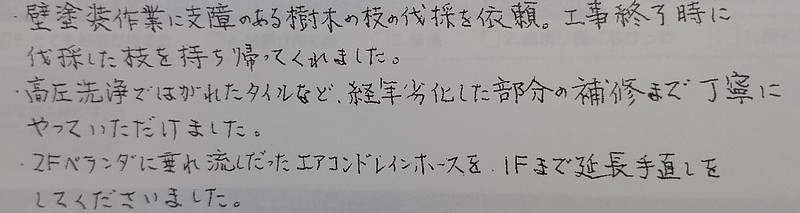 ・壁塗装作業に支障のある樹木の枝の伐採を依頼。工事終了時に
伐採した枝を持ち帰ってくれました。
・高圧洗浄ではがれたタイルなど、経年劣化した部分の補修まで丁寧に
やっていただけました。
・2Fベランダに垂れ流しだったエアコンドレインホースを、1Fまで延長手直しを
してくださいました。